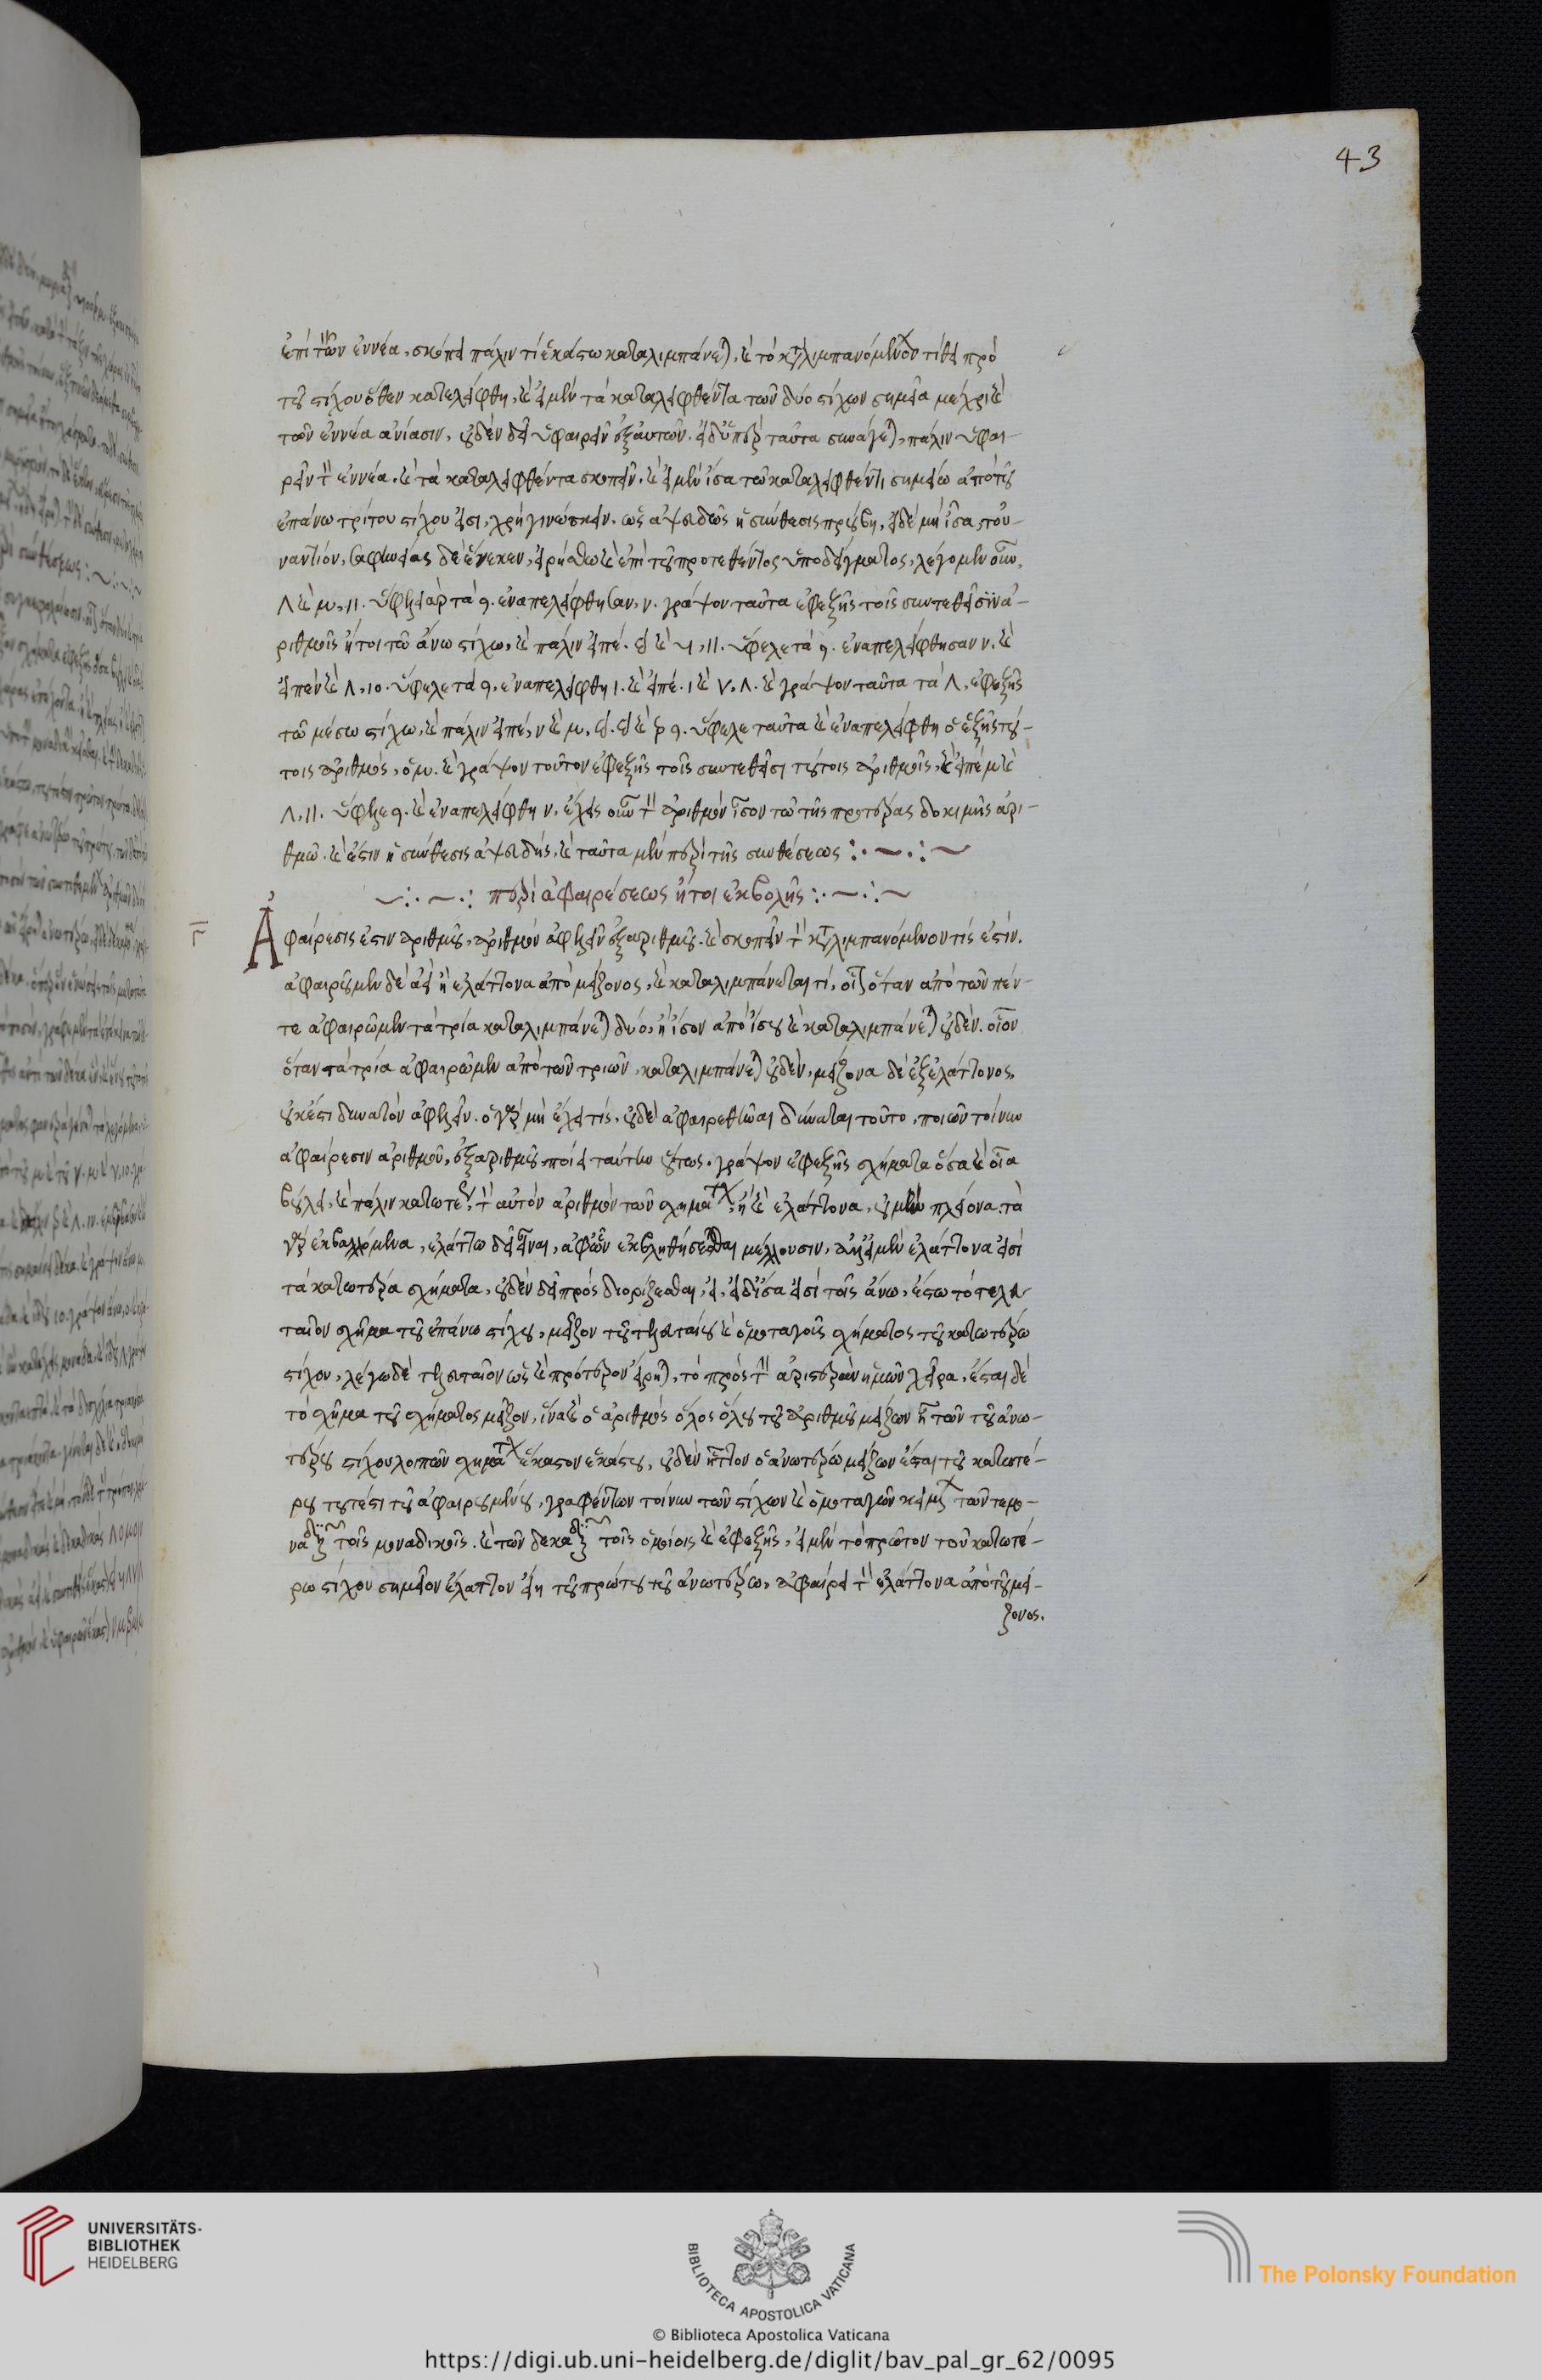 43
ἐπὶ τῶν ἐννέα, σκόπει πάλιν τί ἑκάστω καταλιμπάνεται, καὶ τὸ καταλιμπανόμενον τίθει πρὸ
τοῦ στίχου ὅθεν κατελείφθη, καὶ εἰ μὲν τὰ καταλειφθέντα τῶν δύο στίχων σημεῖα μέχρι καὶ
τῶν ἐννέα ἀνίασιν, οὐδὲν δεῖ ὑφαιρεῖν ἐξ αὐτῶν. εἰ δ' ὑπὲρ ταῦτα συνάγεται, πάλιν ὑφαι-
ρεῖν τὸν ἐννέα. καὶ τὰ καταλειφθέντα σκοπεῖν. καὶ εἰ μὲν ἴσα τῶ καταλειφθέντι σημείω ἀπὸ τοῦ
ἐπάνω τρίτου στίχου εἰσὶ, χρὴ γινώσκειν. ὡς ἀψευδῶς ἡ σύνθεσις προύβη, εἰ δὲ μὴ ἴσα, τοὐ-
ναντίον, σαφηνείας δὲ ἕνεκεν, εἰρήσθω καὶ ἐπὶ τοῦ προτεθέντος ὑποδείγματος, λέγομεν οὖν,
Λ καὶ μ, 11. ὕφελε γὰρ τὰ 9. ἐναπελείφθησαν, ν. γράψον ταῦτα ἐφεξῆς τοῖς συντεθεῖσιν ἀ-
ριθμοῖς ἤτοι τῶ ἄνω στίχω, καὶ πάλιν εἰπέ. καὶ 11. ὕφελε τὰ 9. ἐναπελείφθησαν ν. καὶ
εἰπὲ ν καὶ Λ, 10. ὕφελε τὰ 9, ἐναπελείφθη 1. καὶ εἰπέ. 1 καὶ ν, Λ. καὶ γράψον ταῦτα τὰ Λ, ἐφεξῆς
τῶ μέσω στίχω, καὶ πάλιν εἰπέ, ν καὶ μ, 9. ὕφελε ταῦτα καὶ ἐναπελείφθη ὁ ἑξῆς τού-
τοις ἀριθμὸς, ὁ μ. καὶ γράψον τοῦτον ἐφεξῆς τοῖς συντεθεῖσι τούτοις ἀριθμοῖς, καὶ εἰπὲ μ καὶ
Λ, 11. ὕφελε 9. καὶ ἐναπελείφθη ν. ἔχεις οὖν τὸν ἀριθμὸν ἴσον τῶ τῆς προτέρας δοκιμῆς ἀρι-
θμῶ. καὶ ἔστιν ἡ σύνθεσις ἀψευδής. καὶ ταῦτα μὲν περὶ τῆς συνθέσεως :·~·:~
~:·~·: περὶ ἀφαιρέσεως ἤτοι ἐκβολῆς :·~·:~
Γ
Ἀφαίρεσις ἐστιν ἀριθμοῦ, ἀριθμὸν ἀφελεῖν ἐξ ἀριθμοῦ. καὶ σκοπεῖν τὸν καταλιμπανόμενον τίς ἐστίν.
ἀφαιροῦμεν δὲ ἀεὶ ἢ ἐλάττονα ἀπὸ μείζονος, καὶ καταλιμπάνεται τί, οἷον ὅταν ἀπὸ τῶν πέν-
τε ἀφαιρῶμεν τὰ τρία καταλιμπάνεται δύο, ἢ ἴσον ἀπὸ ἴσου καὶ καταλιμπάνεται οὐδέν. οἷον
ὅταν τὰ τρία ἀφαιρῶμεν ἀπὸ τῶν τριῶν, καταλιμπάνεται οὐδέν, μείζονα δὲ ἐξ ἐλάττονος,
οὐκ ἔστι δυνατὸν ἀφελεῖν. ὃ γὰρ μὴ ἔχει τίς, οὐδὲ ἀφαιρεθῆναι δύναται τοῦτο, ποιῶν τοίνυν
ἀφαίρεσιν ἀριθμοῦ, ἐξ ἀριθμοῦ, ποίει ταύτην οὕτως. γράψον ἐφεξῆς σχήματα ὅσα καὶ οἷα
βούλει, καὶ πάλιν κατωτέρω τὸν αὐτὸν ἀριθμὸν τῶν σχημάτων, ἢ καὶ ἐλάττονα, οὐ μὴν πλείονα. τὰ
γὰρ ἐκβαλλόμενα, ἐλάττω δεῖ εἶναι, ἀφ' ὧν ἐκβληθήσεσθαι μέλλουσιν, ἀλλ' εἰ μὲν ἐλάττονα εἰσὶ
τὰ κατωτέρα σχήματα, οὐδὲν δεῖ προσδιορίζεσθαι, εἰ δ' ἴσα εἰσὶ τοῖς ἄνω, ἔστω τὸ τελευ-
ταῖον σχῆμα τοῦ ἐπάνω στίχου, μεῖζον τοῦ τελευταίου καὶ ὁμοταγοῦς σχήματος τοῦ κατωτέρω
στίχου, λέγω δὲ τελευταῖον ὡς καὶ πρότερον εἴρηται, τὸ πρὸς τὴν ἀριστερὰν ἡμῶν χεῖρα, ἔσται δὲ
τὸ σχῆμα τοῦ σχήματος μεῖζον, ἵνα καὶ ὁ ἀριθμὸς ὅλος ὅλου τοῦ ἀριθμοῦ μείζων ἢ τῶν τοῦ ἀνω-
τέρου στίχου λοιπῶν σχημάτων ἕκαστον ἑκάστου, οὐδὲν ἧττον ὁ ἀνωτέρω μείζων ἔσται τοῦ κατωτέ-
ρου τουτέστι τοῦ ἀφαιρουμένου, γραφέντων τοίνυν τῶν στίχων καὶ ὁμοταγῶν κειμένων τῶν τε μο-
ναδικῶν τοῖς μοναδικοῖς. καὶ τῶν δεκαδικῶν τοῖς ὁμοίοις καὶ ἐφεξῆς, εἰ μὲν τὸ πρῶτον τοῦ κατωτέ-
ρω στίχου σημεῖον ἔλαττον εἴη τοῦ πρώτου τοῦ ἀνωτέρω, ἀφαίρει τὸν ἐλάττονα ἀπὸ τοῦ μεί-
ζονος.
UNIVERSITÄTS-
BIBLIOTHEK
HEIDELBERG
BIBLIOTECA APOSTOLICA VATICANA
The Polonsky Foundation
© Biblioteca Apostolica Vaticana
https://digi.ub.uni-heidelberg.de/diglit/bav_pal_gr_62/0095